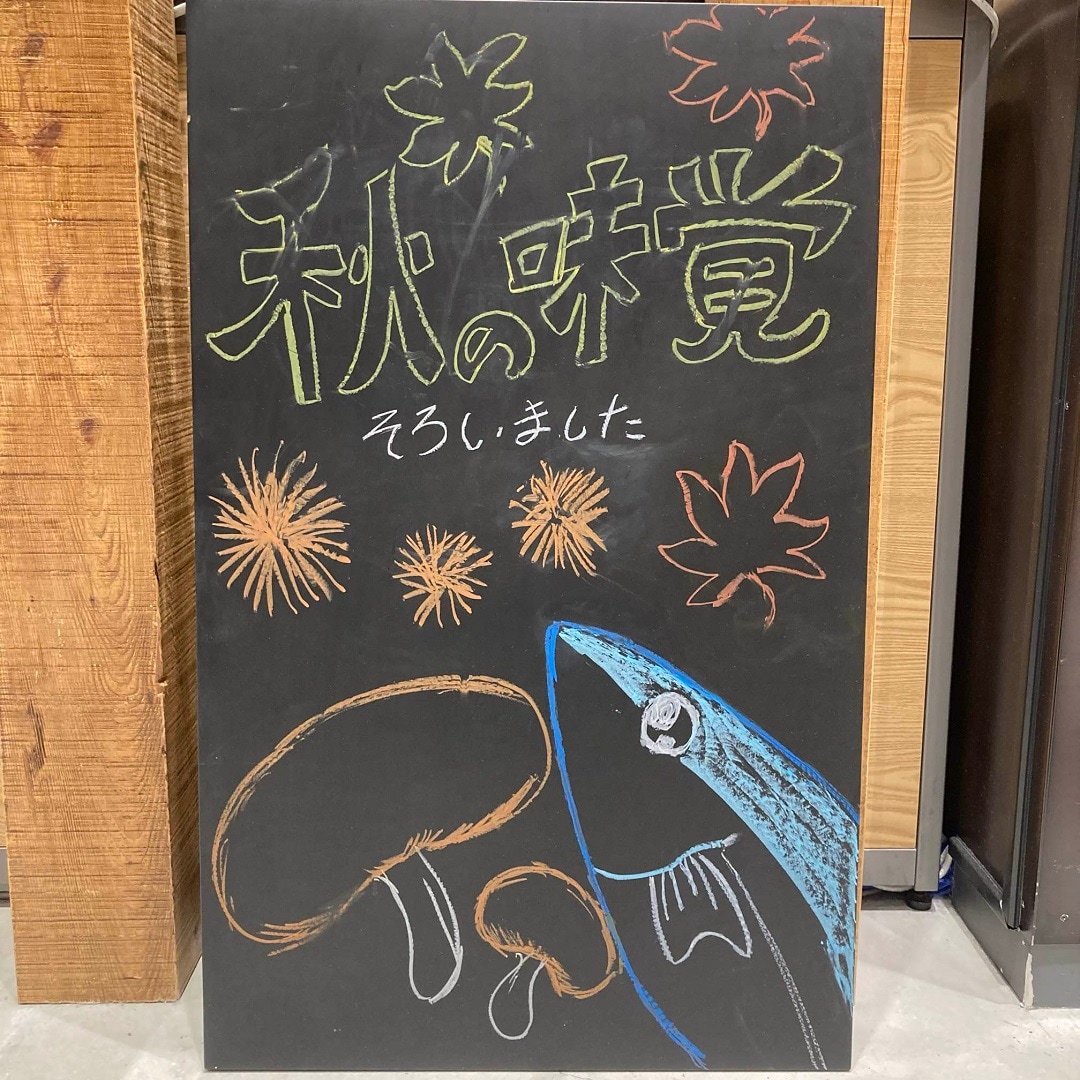 秋の味覚
そろいました